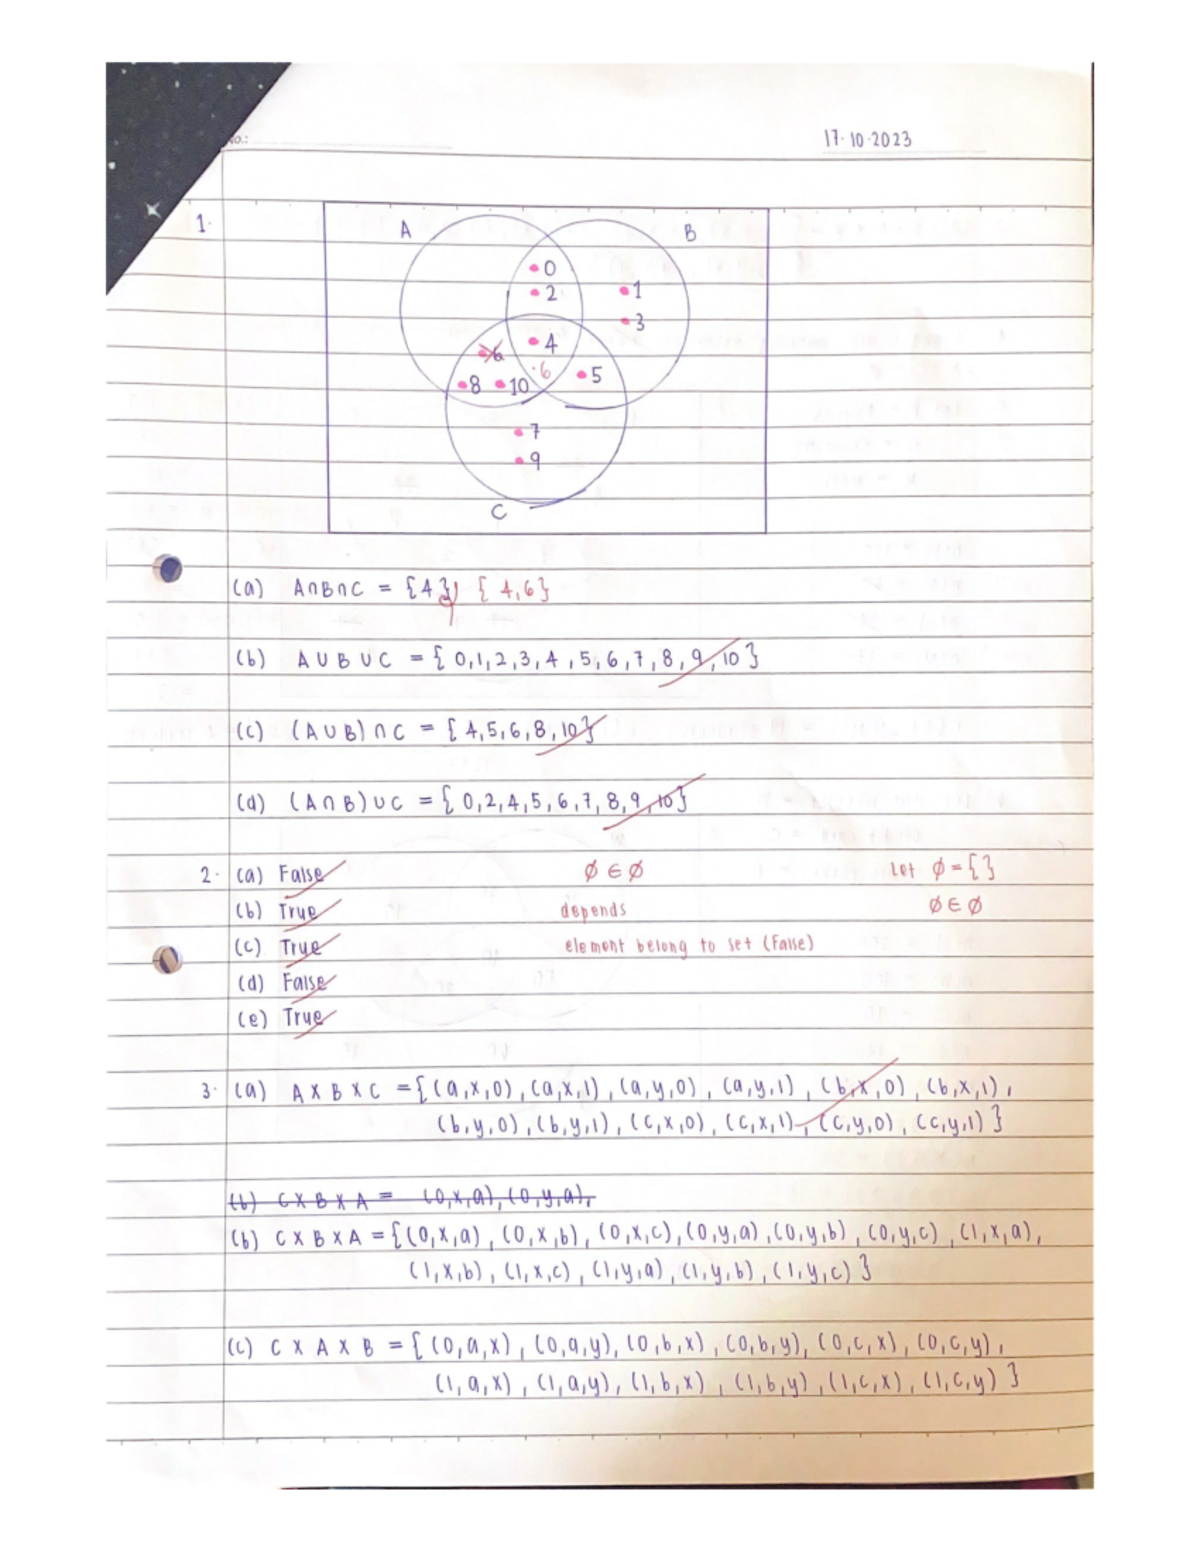 No.:
17.10.2023
1.
A
B
0
2
1
3
4
6
6
5
8
10
7
9
C
(a) A∩B∩C = {4} { 4,6}
(b) A ∪ B ∪ C = { 0,1,2,3,4,5,6,7,8,9,10}
(c) (A∪B)∩C = { 4,5,6,8,10}
(d) (A∩B)∪C = { 0,2,4,5,6,7,8,9,10}
2. (a) False ∅ ∈ ∅ Let ∅ = { }
(b) True depends ∅ ∈ ∅
(c) True element belong to set (False)
(d) False
(e) True
3. (a) A × B × C = {(a,x,0), (a,x,1), (a,y,0), (a,y,1), (b,x,0), (b,x,1),
(b,y,0), (b,y,1), (c,x,0), (c,x,1), (c,y,0), (c,y,1) }
(b) C × B × A = (0,x,a), (0,y,a),
(b) C × B × A = {(0,x,a), (0,x,b), (0,x,c), (0,y,a), (0,y,b), (0,y,c), (1,x,a),
(1,x,b), (1,x,c), (1,y,a), (1,y,b), (1,y,c) }
(c) C × A × B = { (0,a,x), (0,a,y), (0,b,x), (0,b,y), (0,c,x), (0,c,y),
(1,a,x), (1,a,y), (1,b,x), (1,b,y), (1,c,x), (1,c,y) }